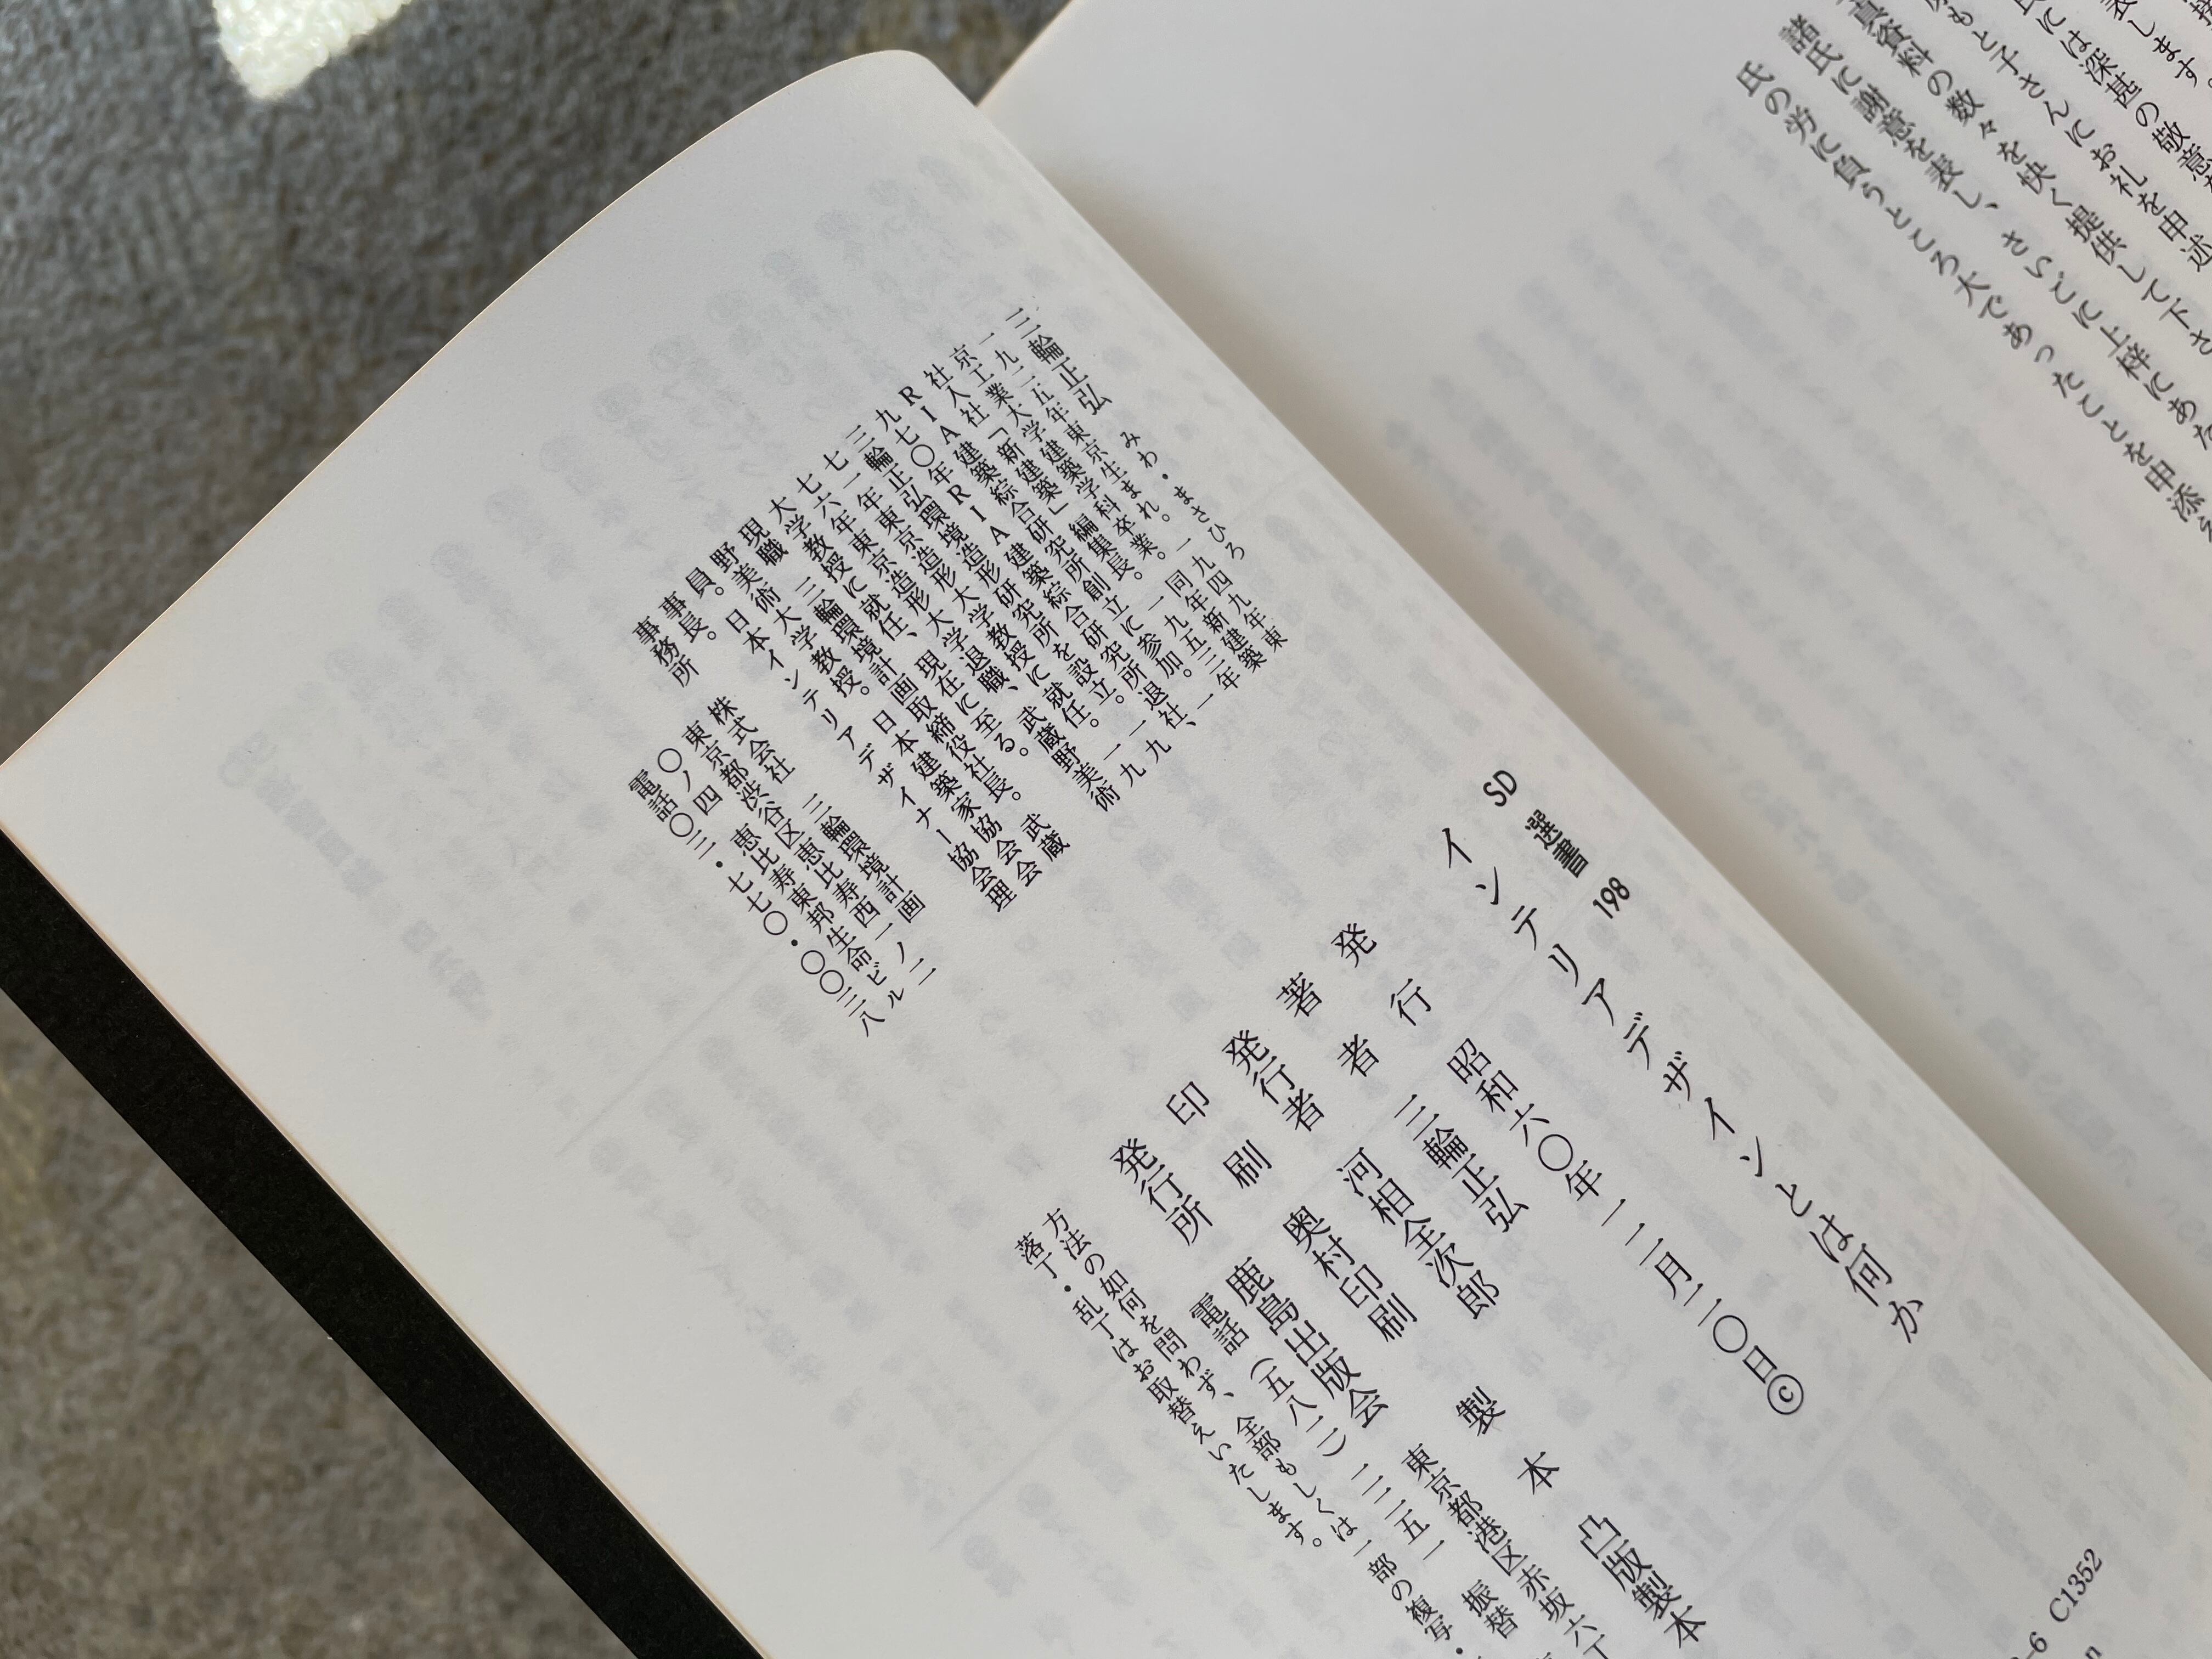 表します。
氏には深甚の敬意を
もと子さんにお礼を申述
真資料の数々を快く提供して下さ
諸氏に謝意を表し、さいごに上梓にあた
氏の労に負うところ大であったことを申添え
SD選書 198
インテリアデザインとは何か
発行 昭和六〇年一二月二〇日©
著者 三輪正弘
発行者 河相全次郎
印刷 奥村印刷 製本 凸版製本
発行所 鹿島出版会 東京都港区赤坂六丁
電話(五八二)二二五一 振替
方法の如何を問わず、全部もしくは一部の複写・
落丁・乱丁はお取替えいたします。
三輪正弘 みわ・まさひろ
一九二五年東京生まれ。一九四九年東
京工業大学建築学科卒業。同年新建築
社入社「新建築」編集長。一九五三年
RIA建築綜合研究所創立に参加。一
九七〇年RIA建築綜合研究所を退社、
三輪正弘環境造形研究所を設立。一九
七一年東京造形大学教授に就任。一九
七六年東京造形大学退職、武蔵野美術
大学教授に就任、現在に至る。
現職 三輪環境計画取締役社長。武蔵
野美術大学教授。日本建築家協会会
員。日本インテリアデザイナー協会理
事長。
事務所 株式会社 三輪環境計画
東京都渋谷区恵比寿西一ノ二
〇ノ四 恵比寿東邦生命ビル
電話〇三・七七〇・〇〇三八
-6 C1352